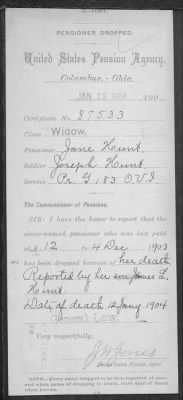 3-1081.
PENSIONER DROPPED.
United States Pension Agency,
Columbus, Ohio.
JAN 22 1904 , 190
Certificate No. 87533
Class Widow.
Pensioner Jane Hunt,
Soldier Joseph Hunt,
Service Pr. G 183 O.V.I.
The Commissioner of Pensions.
SIR: I have the honor to report that the
above-named pensioner who was last paid
at $ 12 to 4 Dec , 1903
has been dropped because of her death,
Reported by her son James L.
Hunt.
Date of death 12 Jany 1904
General Law.
Very respectfully,
United States Pension Agent.
NOTE.—Every name dropped to be thus reported at once,
and when cause of dropping is death, state date of death
when known.